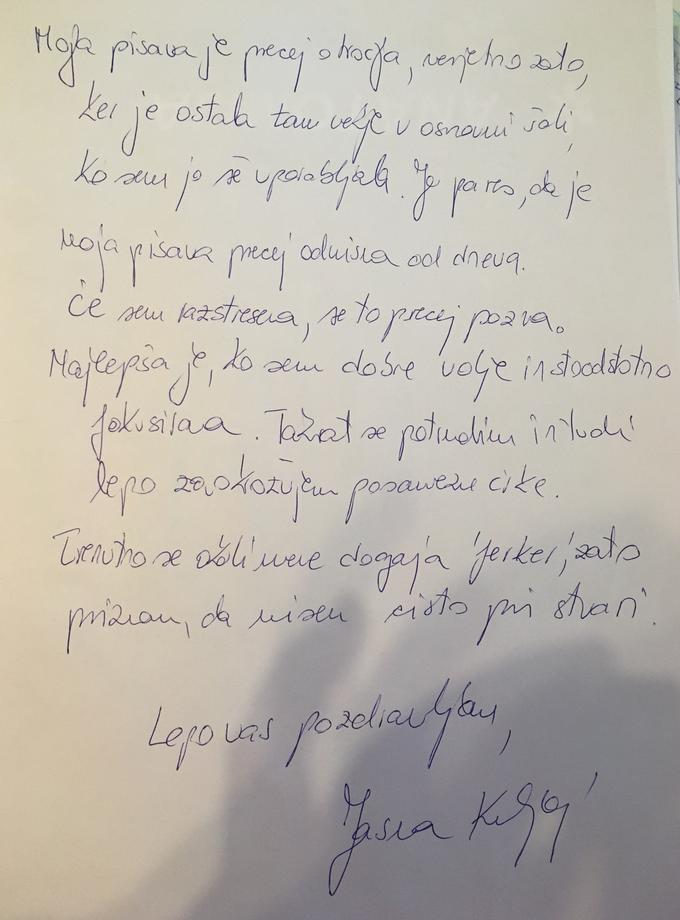 Moja pisava je precej otročja, verjetno zato,
ker je ostala tam nekje v osnovni šoli,
ko sem jo še uporabljala. Je pa res, da je
moja pisava precej odvisna od dneva.
Če sem raztresena, se to precej pozna.
Najlepša je, ko sem dobre volje in stoodstotno
fokusirana. Takrat se potrudim in tudi
lepo zaokrožujem posamezne črke.
Trenutno se okoli mene dogaja 'ferker', zato
priznam, da nisem čisto pri stvari.
Lepo vas pozdravljam,
Jasna